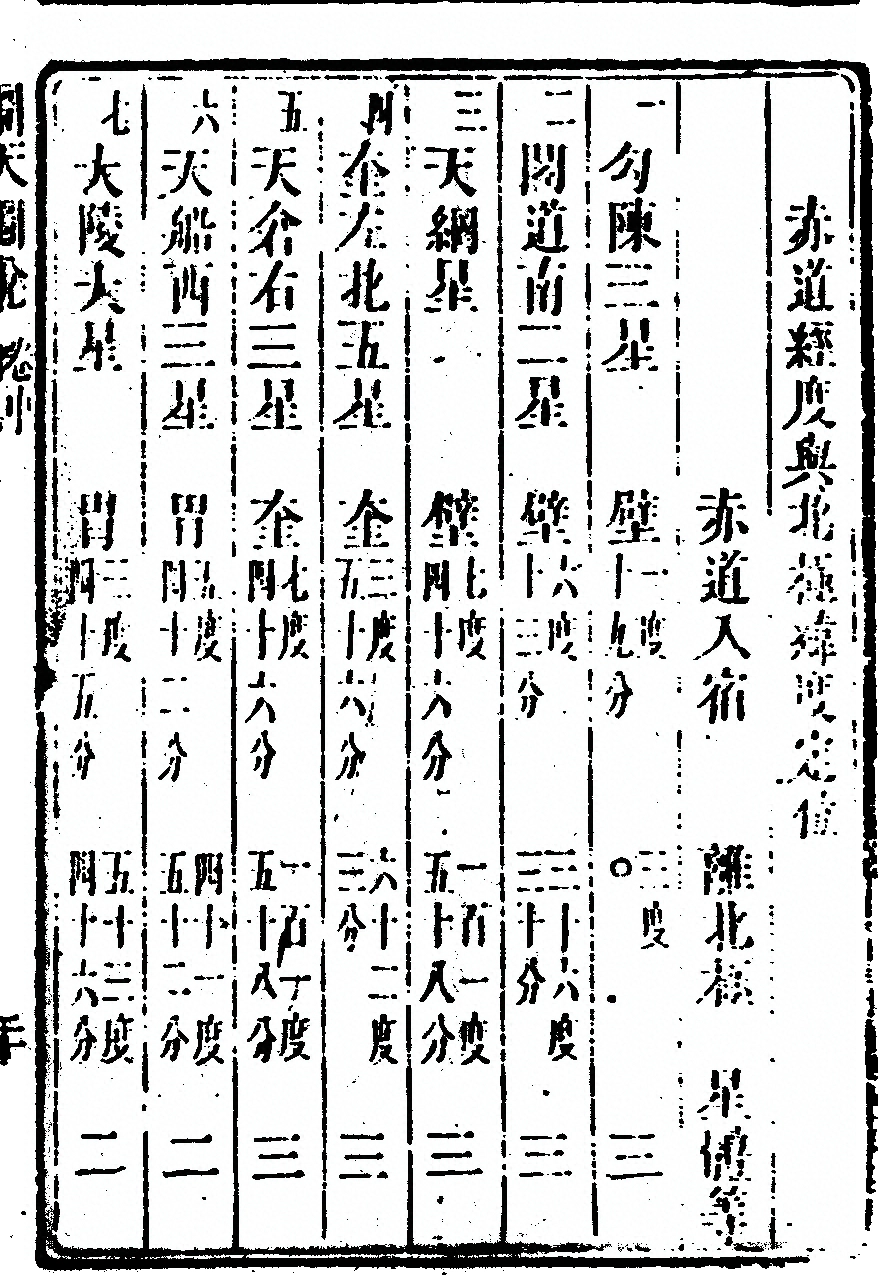 赤道經度與北極緯度定值
赤道入宿 離北極 星體等
一 勾陳三星 壁 一度十九分 三度〇 三
二 閣道南二星 壁 六度十三分 三十六度三十分 三
三 天綱星 壁 七度四十六分 一百一度五十八分 三
四 奎左北五星 奎 三度五十六分 六十二度三分 三
五 天倉右三星 奎 七度四十六分 一百十度五十八分 三
六 天船西三星 胃 五度四十二分 四十一度五十二分 二
七 大陵大星 胃 三度四十五分 五十三度四十六分 二